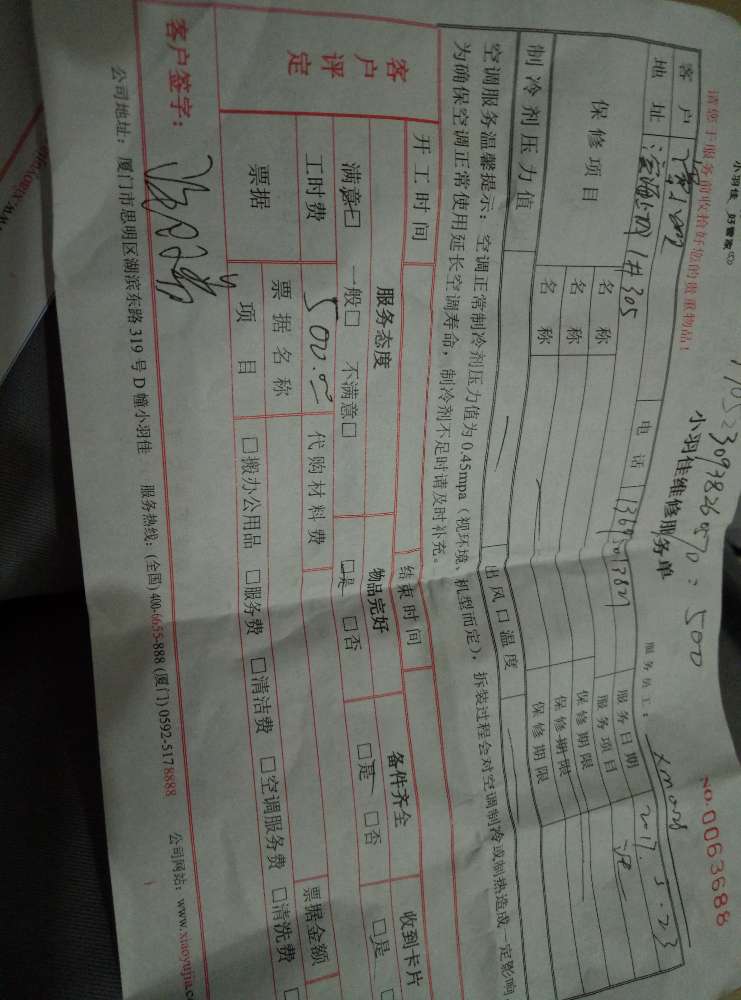 小羽佳 好管家
请您于服务前收拾好您的贵重物品！
小羽佳维修服务单
NO.0063688
= 500
服务员工：
客户
电话
服务日期 2017.5.23
地址 滨海 1#305
服务项目
保修项目
名称
保修期限
名称
保修期限
名称
保修期限
制冷剂压力值
出风口温度
空调服务温馨提示：空调正常制冷剂压力值为0.45mpa（视环境、机型而定），拆装过程会对空调制冷或制热造成一定影响
为确保空调正常使用延长空调寿命，制冷剂不足时请及时补充。
开工时间
结束时间
客户评定
服务态度
物品完好
备件齐全
收到卡片
满意□ 一般□ 不满意□
□是 □否
□是 □否
□是
工时费 500.00
代购材料费
票据
票据名称
票据金额
项目
□搬办公用品 □服务费 □清洁费 □空调服务费 □清洗费
客户签字：
公司地址：厦门市思明区湖滨东路319号D幢小羽佳 服务热线：(全国)400-6655-888 (厦门)0592-5178888 公司网站：www.xiaoyujia.c
www.xiaoyujia